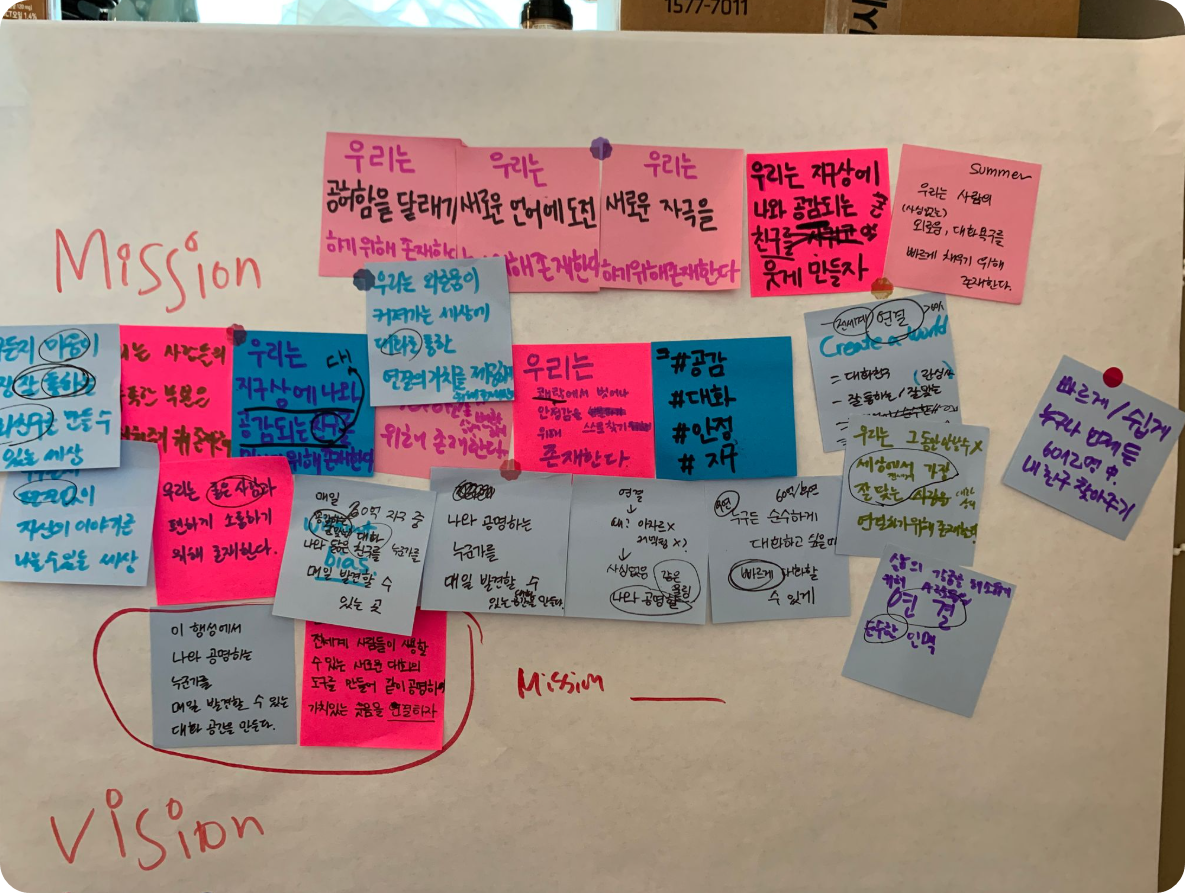 1577-7011
우리는
공허함을 달래기
하기 위해 존재한다
우리는
새로운 언어에 도전
위해 존재한다
우리는
새로운 자극을
하기 위해 존재한다
우리는 지구상에
나와 공감되는
친구를
웃게 만들자
summer
우리는 사람의
(사심없는)
외로움, 대화욕구를
빠르게 채우기 위해
존재한다.
Mission
마음이
잘 통하는
만들 수
있는 세상
사람들의
부족한 부분은
우리는
대
지구상에 나와
공감되는 친구를
위해 존재한다
우리는 외로움이
커져가는 세상에
대화를 통한
연결의 가치를
위해 존재한다.
우리는
쾌락에서 벗어나
안정감을
위해 스스로 찾기
존재한다.
#공감
#대화
#안정
#친구
전세계 연결
Create a world
= 대화친구
- 잘 통하는 / 잘 맞는
빠르게 / 쉽게
누구나 언제든
60억 명 中
내 친구 찾아주기
자신의 이야기를
나눌 수 있는 세상
우리는 좋은 사람과
편하게 소통하기
위해 존재한다.
매일
60억 지구 중
대화
나와 닮은 친구를 누군가를
bias
매일 발견할 수
있는 곳
나와 공명하는
누군가를
매일 발견할 수
있는 만든다.
연결
왜? 이자르 x
x)
↓
사심없음 같은
↓ 울림
나와 공명할
60억/화면
누구든 순수하게
대화하고 싶을 때
빠르게 대화할
수 있게
우리는 그동안 x
세상에서 가장
잘 맞는 사람을
연결하기 위해 존재한다.
#연결
순수한 인맥
이 행성에서
나와 공명하는
누군가를
매일 발견할 수 있는
대화 공간을 만든다.
전세계 사람들이 사용할
수 있는 새로운 대화의
도구를 만들어 같이 공명하여
가치있는 웃음을 연결하자
Mission
Vision